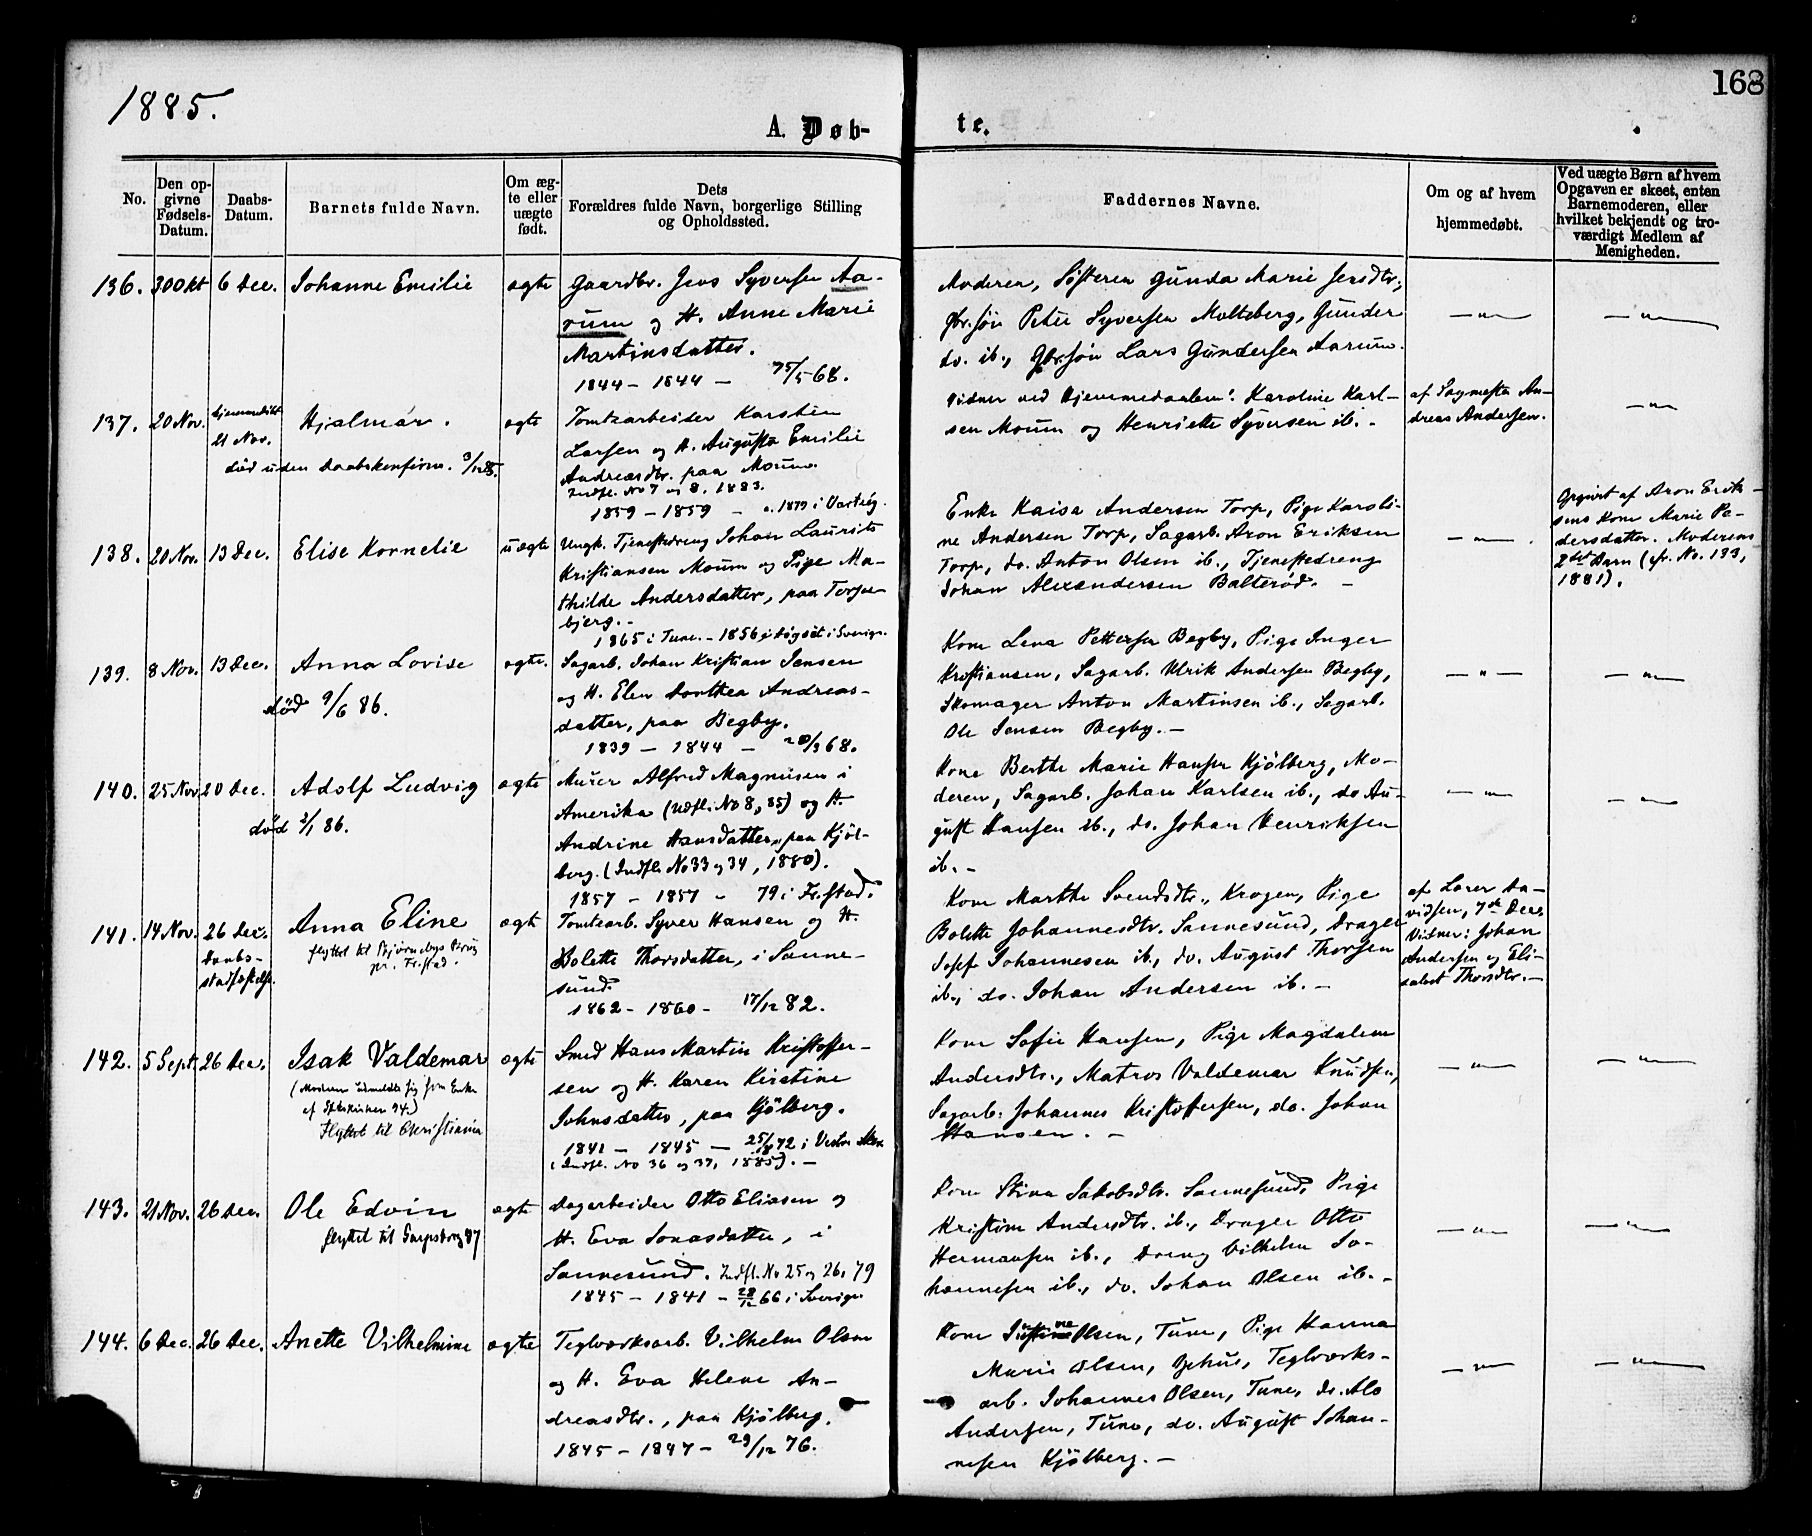 168
1885.
A. Døb-
te.
No.
Den op-
givne
Fødsels-
Datum.
Daabs-
Datum.
Barnets fulde Navn.
Om æg-
te eller
uægte
født.
Dets
Forældres fulde Navn, borgerlige Stilling
og Opholdssted.
Faddernes Navne.
Om og af hvem
hjemmedøbt.
Ved uægte Børn af hvem
Opgaven er skeet, enten
Barnemoderen, eller
hvilket bekjendt og tro-
værdigt Medlem af
Menigheden.
136. 30 Okt 6 Dec. Johanne Emilie ægte
Gaardbr. Jens Syversen Aa-
rum og H. Anne Marie
Martinsdatter.
1844 - 1844 - 75/5 68.
Moderen, Søsteren Gunda Marie Jensdtr.,
Gbr.søn Peter Syversen Molteberg, Gunder
do. ib., Gbr.søn Lars Gundersen Aarum.
— " —
— " —
137. 20 Nov. hjemmedøbt
21 Nov.
Hjalmar. ægte
død uden Daabskonfirm. 3/12 85.
Tomtearbeider Karsten
Larsen og H. Augusta Emilie
Andreasdtr. paa Moum.
Indfl. No 7 og 8, 1883.
1859 - 1859 - 1879 i Varteig.
Vidner ved Hjemmedaaben: Karoline Karl-
sen Moum og Henriette Syversen ib. -
af Sagmester An-
dreas Andersen.
— " —
138. 20 Nov. 13 Dec. Elise Kornelie uægte
Ungk. Tjenestedreng Johan Laurits
Kristiansen Moum og Pige Ma-
thilde Andersdatter, paa Torpe-
bjerg. -
1865 i Tune. - 1856 i Høgsät i Sverige.
Enke Kaisa Andersen Torp, Pige Karoli-
ne Andersen Torp, Sagarb. Aron Eriksen
Torp, do. Anton Olsen ib., Tjenestedreng
Johan Alexandersen Balterød. -
— " — .
Opgivet af Aron Erik-
sens Kone Marie Pe-
dersdatter. Moderens
2det Barn (cfr. No. 133,
1881).
139. 8 Nov. 13 Dec. Anna Lovise ægte.
død 9/6 86.
Sagarb. Johan Kristian Jensen
og H. Elen Dorthea Andreas-
datter, paa Begby.
1839 - 1844 - 20/3 68.
Kone Lena Pettersen Begby, Pige Anger
Kristiansen, Sagarb. Ulrik Andersen Begby,
Skomager Anton Martinsen ib., Sagarb.
Ole Jensen Begby. -
— " —
— " —
140. 25 Nov 20 Dec. Adolf Ludvig ægte
død 2/1 86.
Murer Alfred Magnusen i
Amerika (Udfl. No 8, 85) og H.
Andrine Hansdatter, paa Kjøl-
berg. (Indfl. No 33 og 34, 1880).
1857 - 1857 - 79 i Fr.stad.
Kone Berthe Marie Hansen Kjølberg, Mo-
deren, Sagarb. Johan Karlsen ib., do Au-
gust Hansen ib., do. Johan Henriksen
ib. -
— " —
— " —
141. 14 Nov. 26 Dec.
Daabs-
stadfæstelse.
Anna Eline ægte
flyttet til Bjørnebys Brug
pr. Fr.stad.
Tomtearb. Syver Hansen og H.
Bolette Thorsdatter, i Sanne-
sund.
1862 - 1860 - 17/12 82.
Kone Marthe Svendsdtr., Krogen, Pige
Bolette Johannesdtr. Sannesund, Drager
Josef Johannesen ib., do. August Thorsen
ib., do. Johan Andersen ib. -
af Lærer Da-
vidsen, 7de Dec.
Vidner: Johan
Andersen og Eli-
sabet Thorsdtr. -
142. 5 Sept. 26 Dec. Isak Valdemar ægte
(Moderen udmeldte sig som Enke
af Statskirken 94.)
Flyttet til Christiania
Smed Hans Martin Kristoffer-
sen og H. Karen Kirstine
Johnsdatter, paa Kjølberg.
1841 - 1845 - 25/8 72 i Vestre Aker
(Indfl. No 36 og 37, 1885). -
Kone Sofie Hansen, Pige Magdalene
Andersdtr., Matros Valdemar Knudsen,
Sagarb. Johannes Kristoffersen, do. Johan
Hansen. -
— " —
— " —
143. 21 Nov. 26 Dec. Ole Edvin ægte
flyttet til Sarpsborg 87
Dagarbeider Otto Eliasen og
H. Eva Jonasdatter, i
Sannesund. Indfl. No 25 og 26, 79
1845 - 1841 - 28/12 66 i Sverige
Kone Stina Jakobsdtr. Sannesund, Pige
Kristine Andersdtr. ib., Drager Otto
Hermansen ib., Dreng Vilhelm Jo-
hannesen ib., do. Johan Olsen ib. -
— " —
— " —
144. 6 Dec. 26 Dec. Anette Vilhelmine ægte
Teglværksarb. Vilhelm Olsen
og H. Eva Helene An-
dreasdtr., paa Kjølberg.
1845 - 1847 - 29/12 76.
Kone Olsen, Tune, Pige Hanna
Marie Olsen, Teglværks-
arb. Johannes Olsen, Tune, do.
Andersen, Tune, do. August Johan-
nesen Kjølberg. -
— " —
— " —